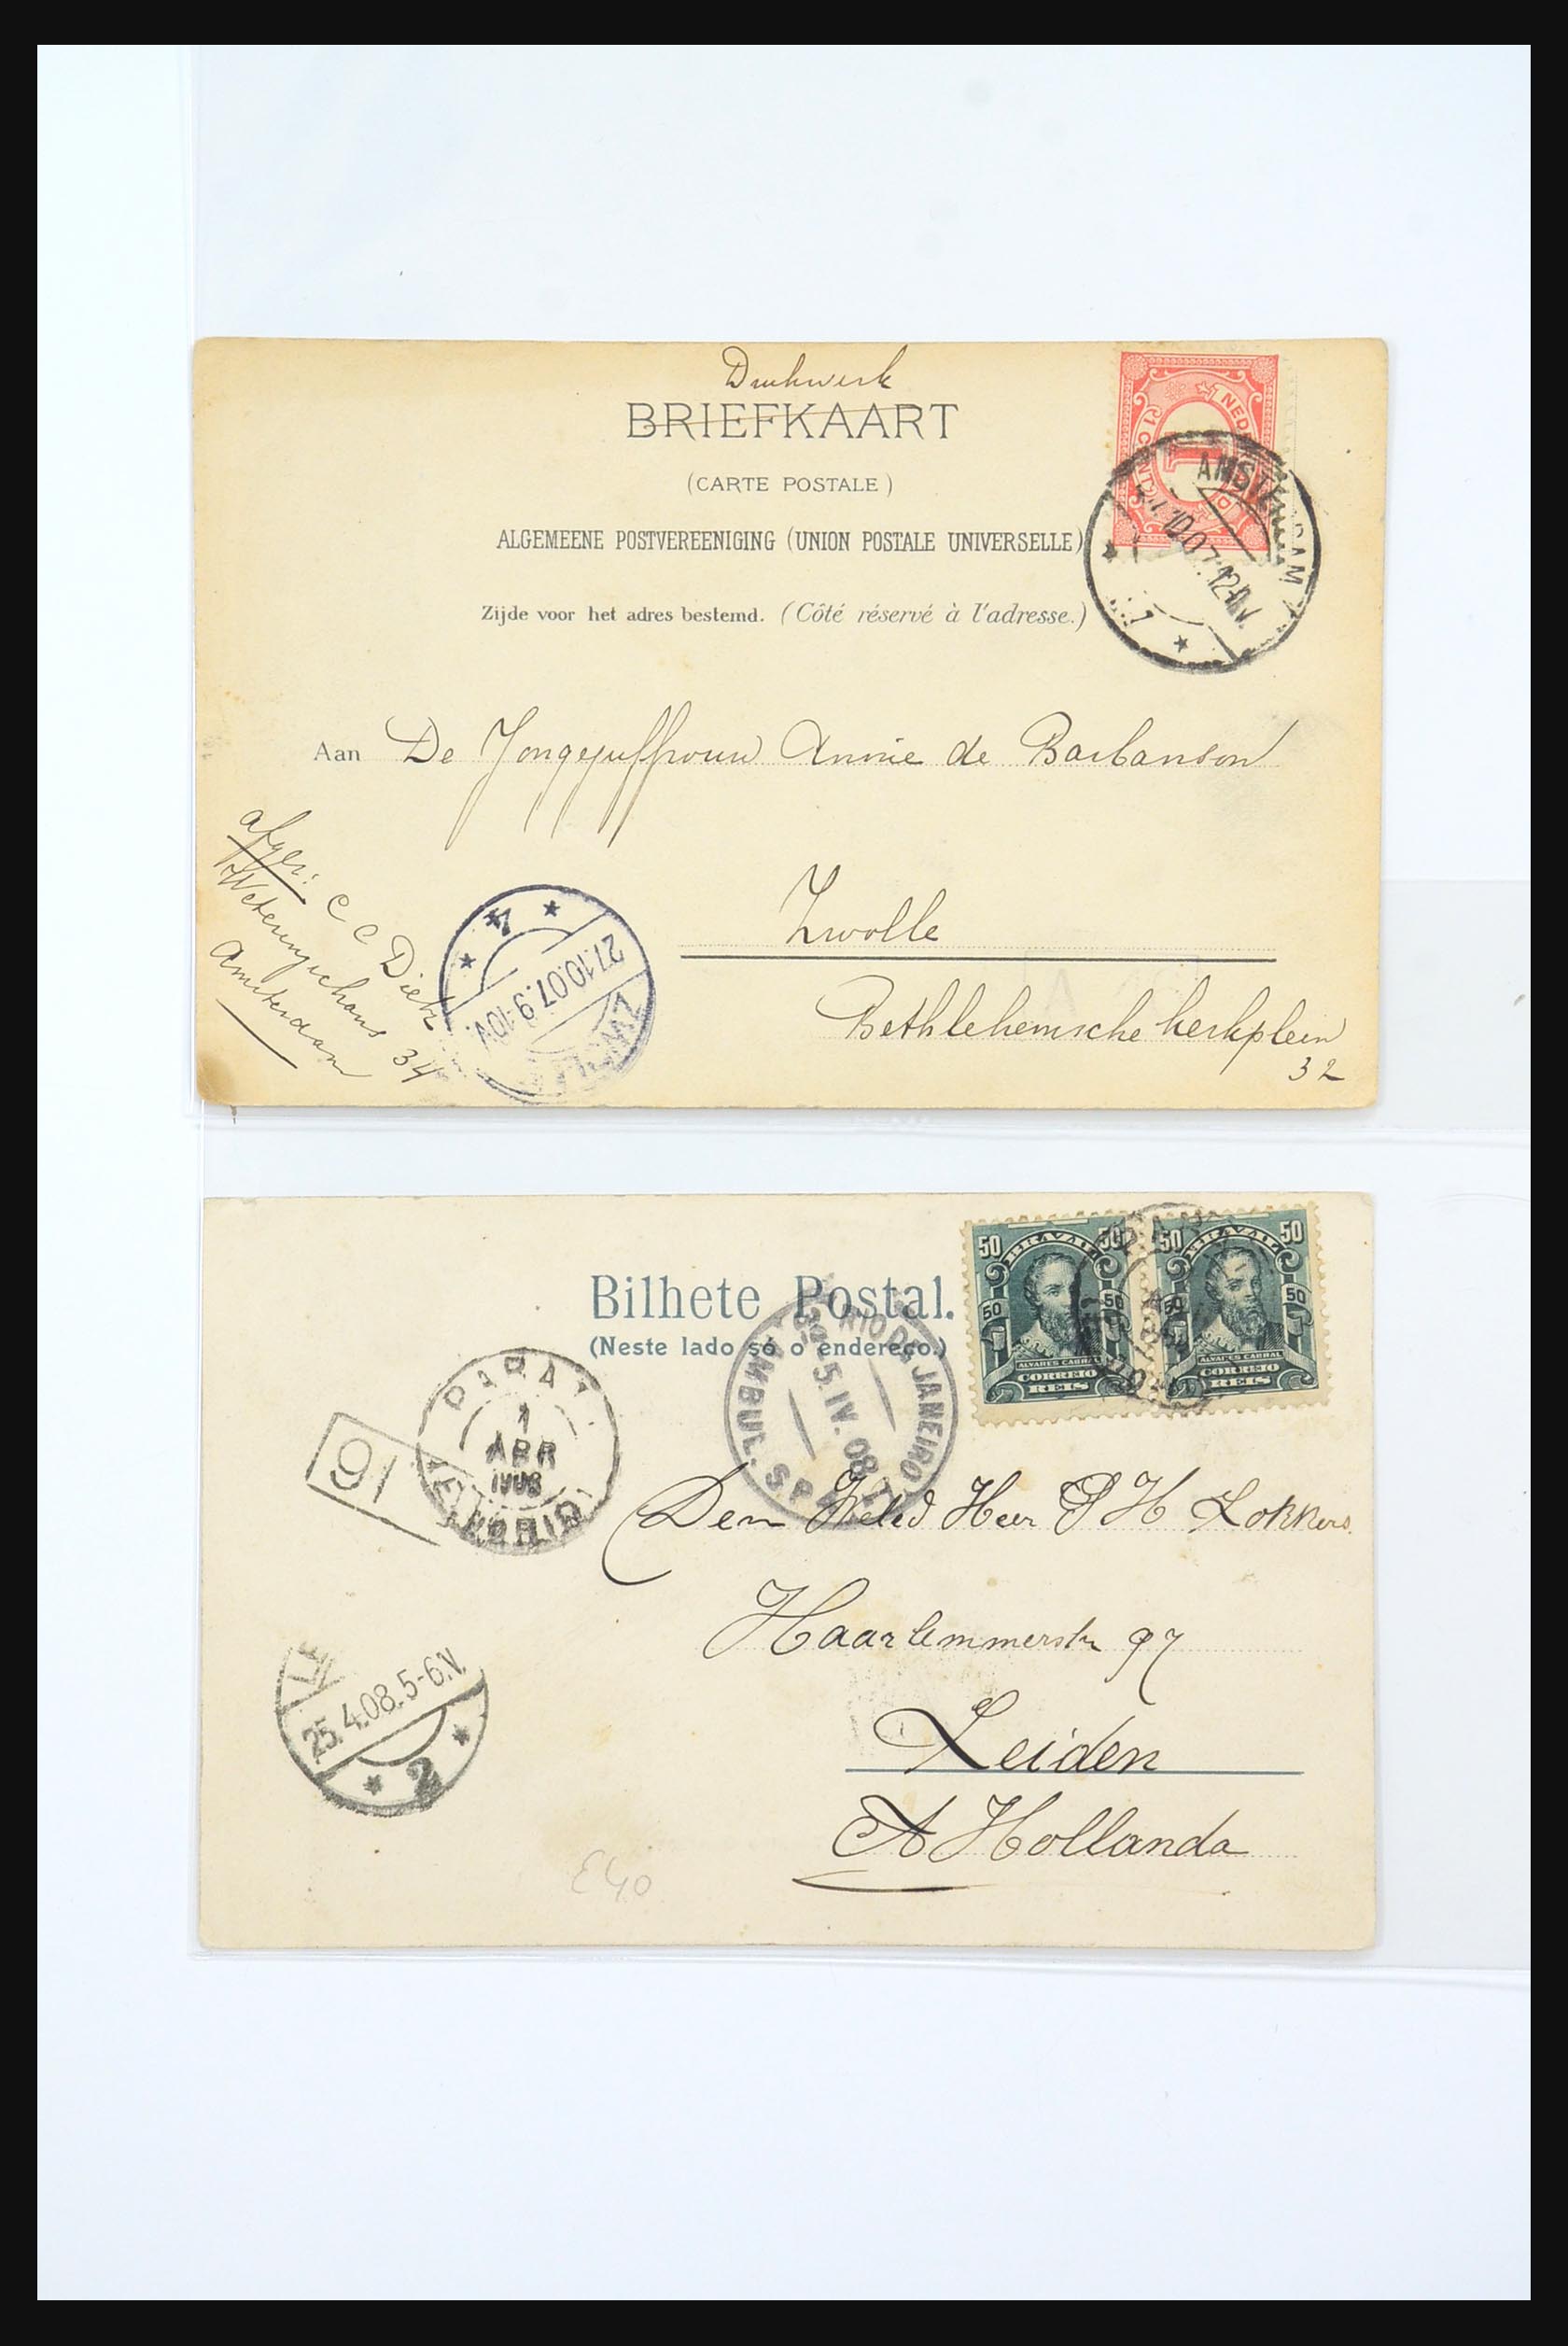 Drukwerk
BRIEFKAART
(CARTE POSTALE)
ALGEMEENE POSTVEREENIGING (UNION POSTALE UNIVERSELLE)
Zijde voor het adres bestemd. (Côté réservé à l'adresse.)
1 CENT
1
AMSTERDAM
10.07.12-1V.
1
Aan De Jongejuffrouw Annie de Barbanson
Zwolle
Bethlehemsche kerkplein
32
afzer: C C Dietz
Weteringschans 34
Amsterdam
ZWOLLE
27.10.07.9-10V.
4
Bilhete Postal.
(Neste lado só o endereço.)
50 BRAZIL 50
50 50
ALVARES CABRAL
CORREIO
REIS
50 BRAZIL 50
50 50
ALVARES CABRAL
CORREIO
REIS
RIO DE JANEIRO
5.IV.08
AMBUL. S.P.
1
ABR
1908
91
Den Weled Heer P H Lokkers.
Haarlemmerstr 97
Leiden
A Hollanda
LE
25.4.08.5-6.V.
2
E40